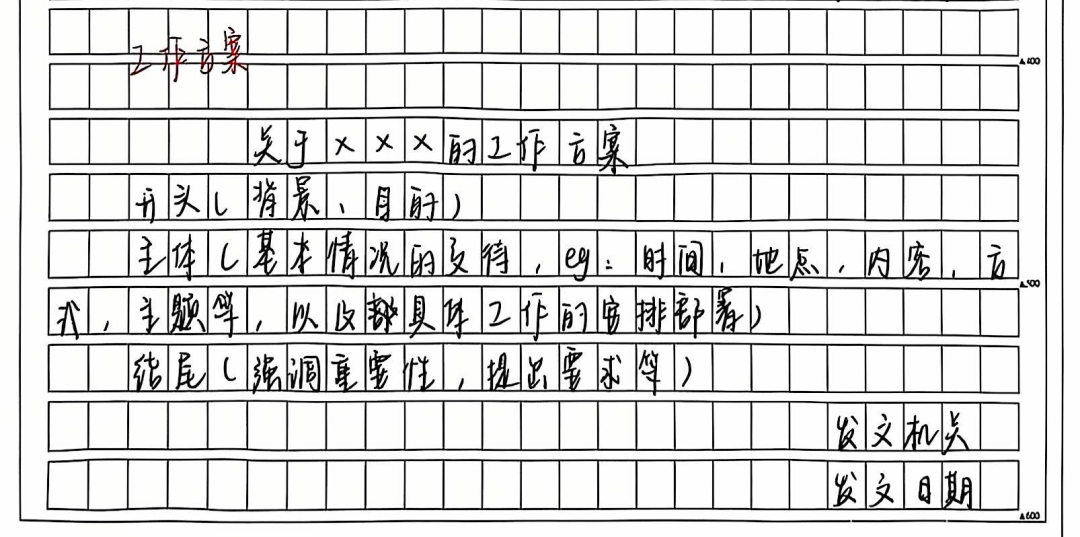 工作方案
▲400
关于×××的工作方案
开头(背景、目的)
主体(基本情况的交待,eg:时间,地点,内容,方
▲500
式,主题等,以及部具体工作的安排部署)
结尾(强调重要性,提出要求等)
发文机关
发文日期
▲600